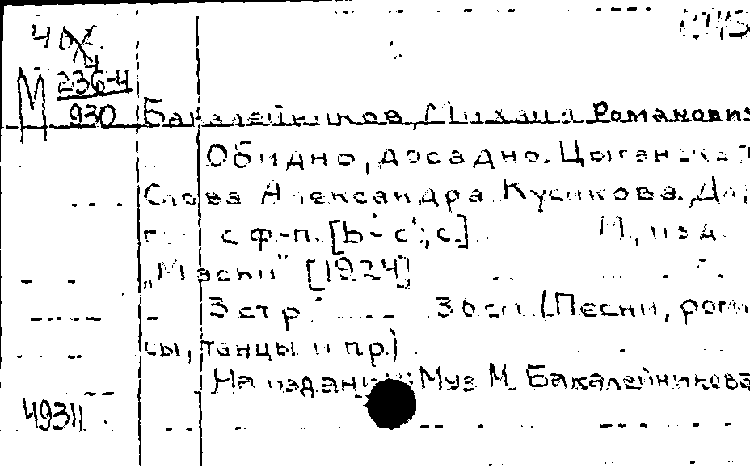 М 236-4
930
Бакалейников, Михаил Романович
Обидно, досадно. Цыганская
Слова Александра Кусикова. Дл
г. с ф-п. [b-c; c.] М., изд.
„Маски" [1924]
3 стр. 30 см. (Песни, ром
сы, танцы и пр.)
На издании: Муз М. Бакалейникова